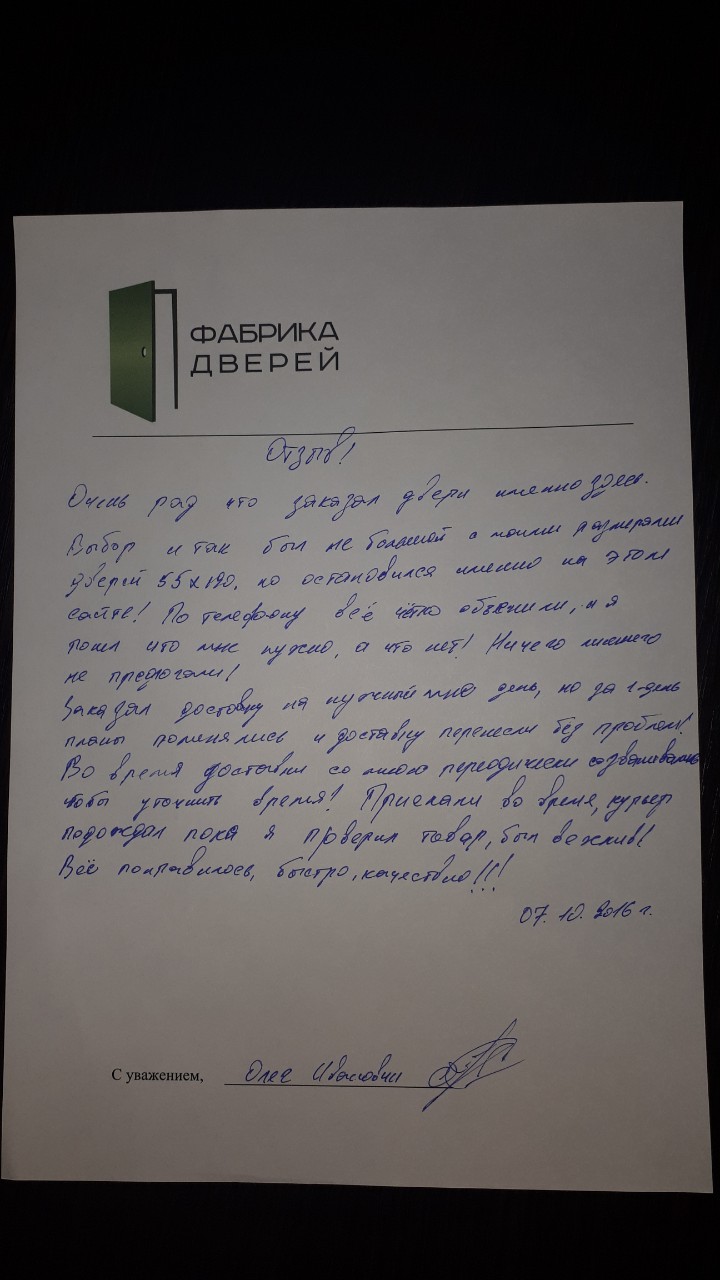 ФАБРИКА
ДВЕРЕЙ
Отзыв!
Очень рад что заказал двери именно здесь.
Выбор и так был не большой с моими размерами
дверей 55х190, но остановился именно на этом
сайте! По телефону всё чётко объяснили, и я
понял что мне нужно, а что нет! Ничего лишнего
не предлогали!
Заказал доставку на нужный мне день, но за 1-день
планы поменялись и доставку перенесли без проблем!
Во время доставки со мною переодически созванивались
чтобы уточнить время! Приехали во время, курьер
подождал пока я проверил товар, был вежлив!
Всё понравилось, быстро, качествено!!!
07.10.2016 г.
С уважением, Олег Иванович